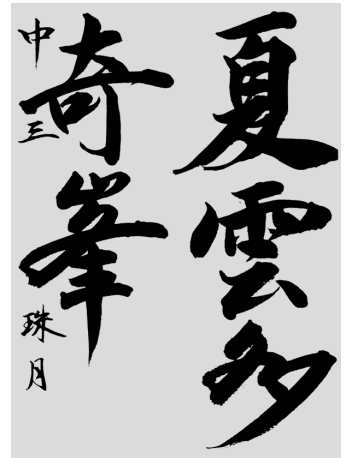 夏雲多
奇峯
中三 珠月